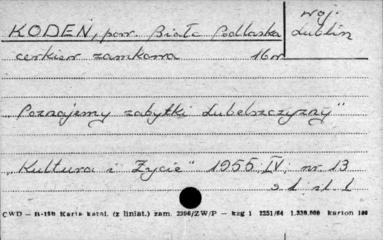 KODEŃ, pow. Biała Podlaska
woj. Lublin
cerkiew zamkowa 16w
"Poznajemy zabytki Lubelszczyzny"
"Kultura i Życie" 1955 IV, nr. 13
CWD — B-19b Karta katal. (z liniat.) zam. 2396/ZW/P — kzg 1 2251/64 1.330.000 karton 180